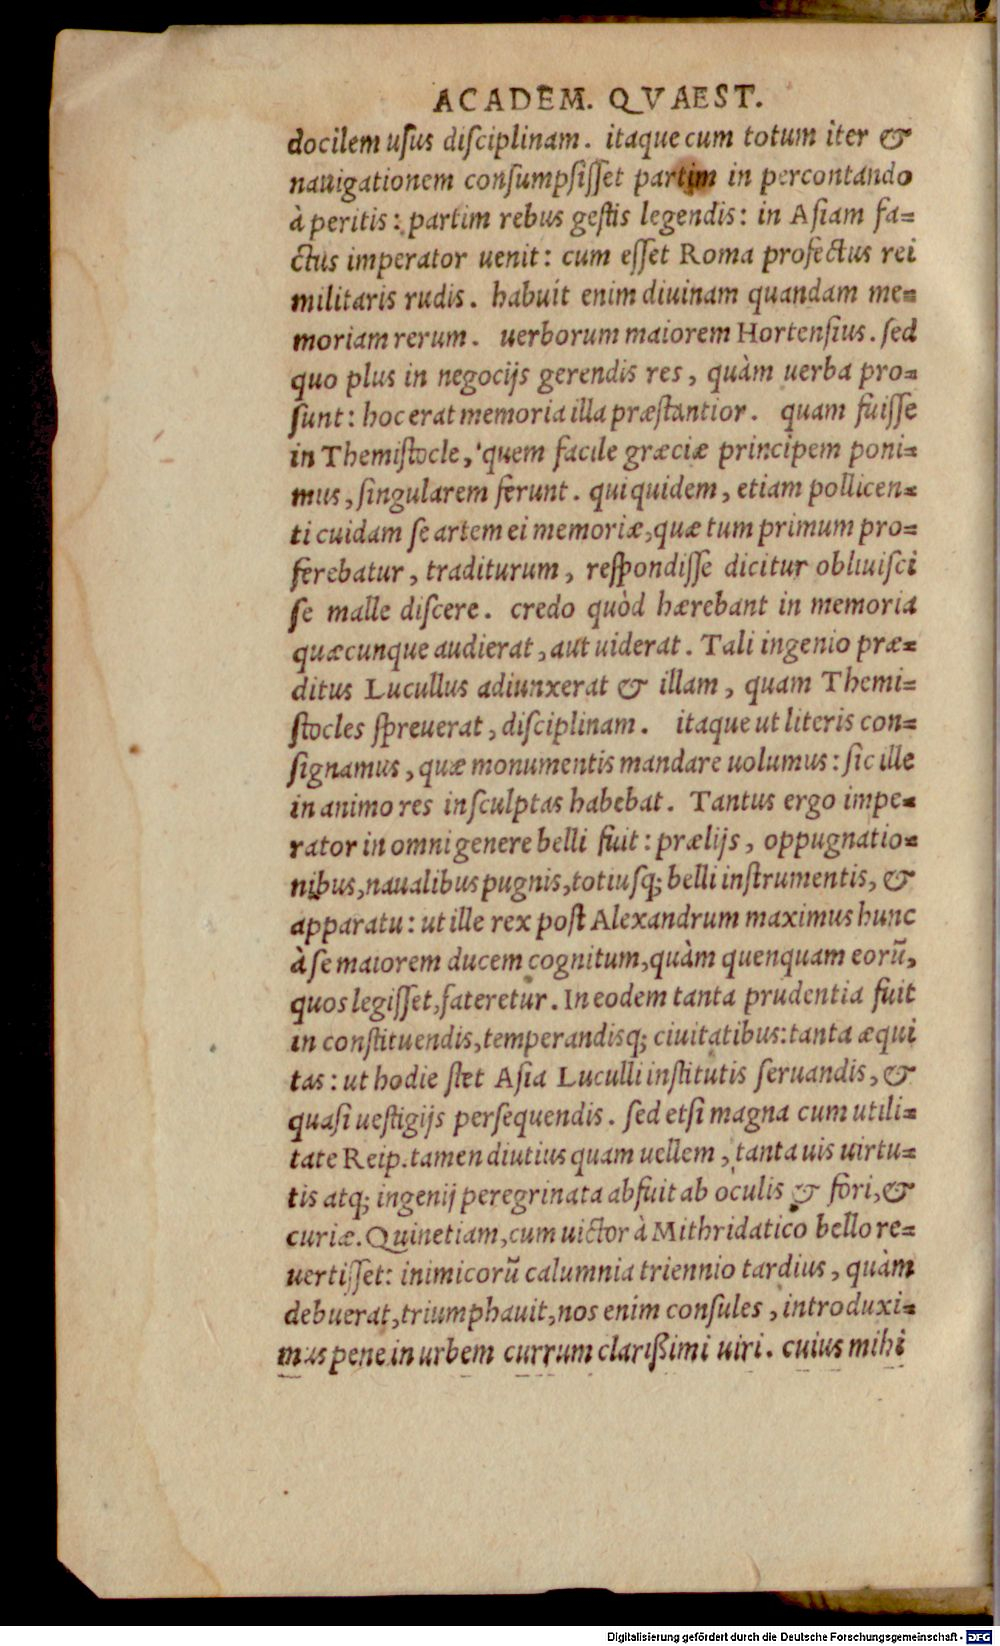 ACADEM. QVAEST.
docilem uſus diſciplinam. itaque cum totum iter &
nauigationem conſumpſiſſet partim in percontando
à peritis: partim rebus geſtis legendis: in Aſiam fa=
ctus imperator uenit: cum eſſet Roma profectus rei
militaris rudis. habuit enim diuinam quandam me=
moriam rerum. uerborum maiorem Hortenſius. ſed
quo plus in negocijs gerendis res, quàm uerba pro=
ſunt: hoc erat memoria illa præſtantior. quam fuiſſe
in Themiſtocle, quem facile græciæ principem poni=
mus, ſingularem ferunt. qui quidem, etiam pollicen=
ti cuidam ſe artem ei memoriæ, quæ tum primum pro=
ferebatur, traditurum, reſpondiſſe dicitur obliuiſci
ſe malle diſcere. credo quòd hærebant in memoria
quæcunque audierat, aut uiderat. Tali ingenio præ=
ditus Lucullus adiunxerat & illam, quam Themi=
ſtocles ſpreuerat, diſciplinam. itaque ut literis con=
ſignamus, quæ monumentis mandare uolumus: ſic ille
in animo res inſculptas habebat. Tantus ergo impe=
rator in omni genere belli fuit: prælijs, oppugnatio=
nibus, naualibus pugnis, totiuſq; belli inſtrumentis, &
apparatu: ut ille rex poſt Alexandrum maximus hunc
à ſe maiorem ducem cognitum, quàm quenquam eorũ,
quos legiſſet, fateretur. In eodem tanta prudentia fuit
in conſtituendis, temperandisq; ciuitatibus: tanta æqui
tas: ut hodie ſtet Aſia Luculli inſtitutis ſeruandis, &
quaſi ueſtigijs perſequendis. ſed etſi magna cum utili=
tate Reip. tamen diutius quam uellem, tanta uis uirtu=
tis atq; ingenij peregrinata abfuit ab oculis & fori, &
curiæ. Quinetiam, cum uictor à Mithridatico bello re=
uertiſſet: inimicorũ calumnia triennio tardius, quàm
debuerat, triumphauit, nos enim conſules, introduxi=
mus pene in urbem currum clarißimi uiri. cuius mihi
Digitalisierung gefördert durch die Deutsche Forschungsgemeinschaft - DFG